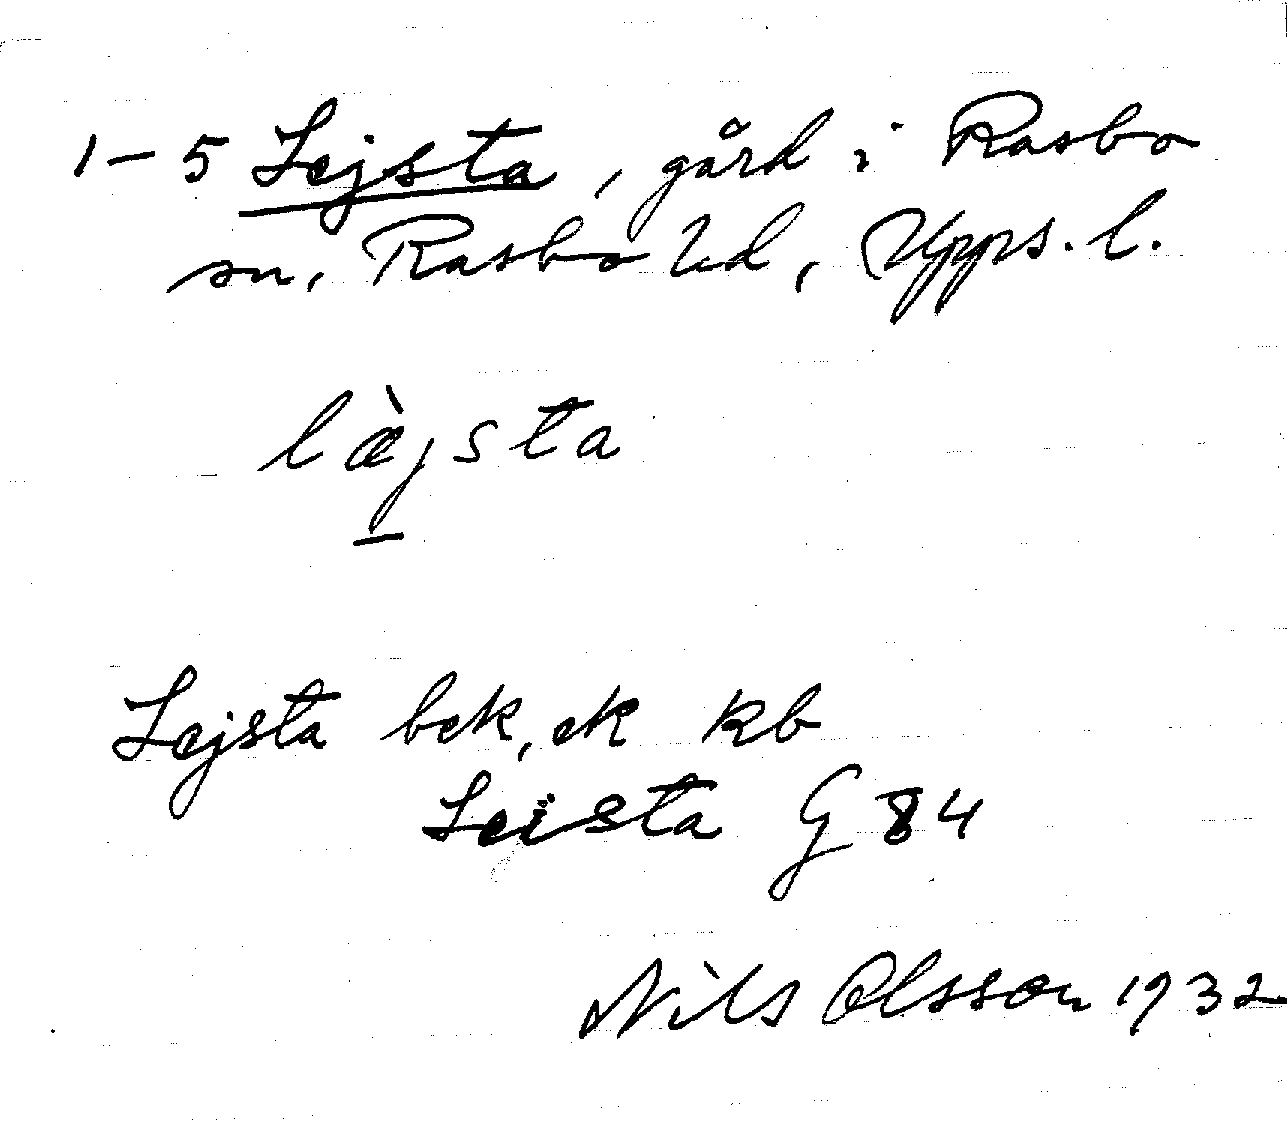 1-5 Lejsta, gård i Rasbo
sn, Rasbo hd, Upps. l.
læ̀jsta
Lejsta bek, ek kb
Leista G 84
Nils Olsson 1932